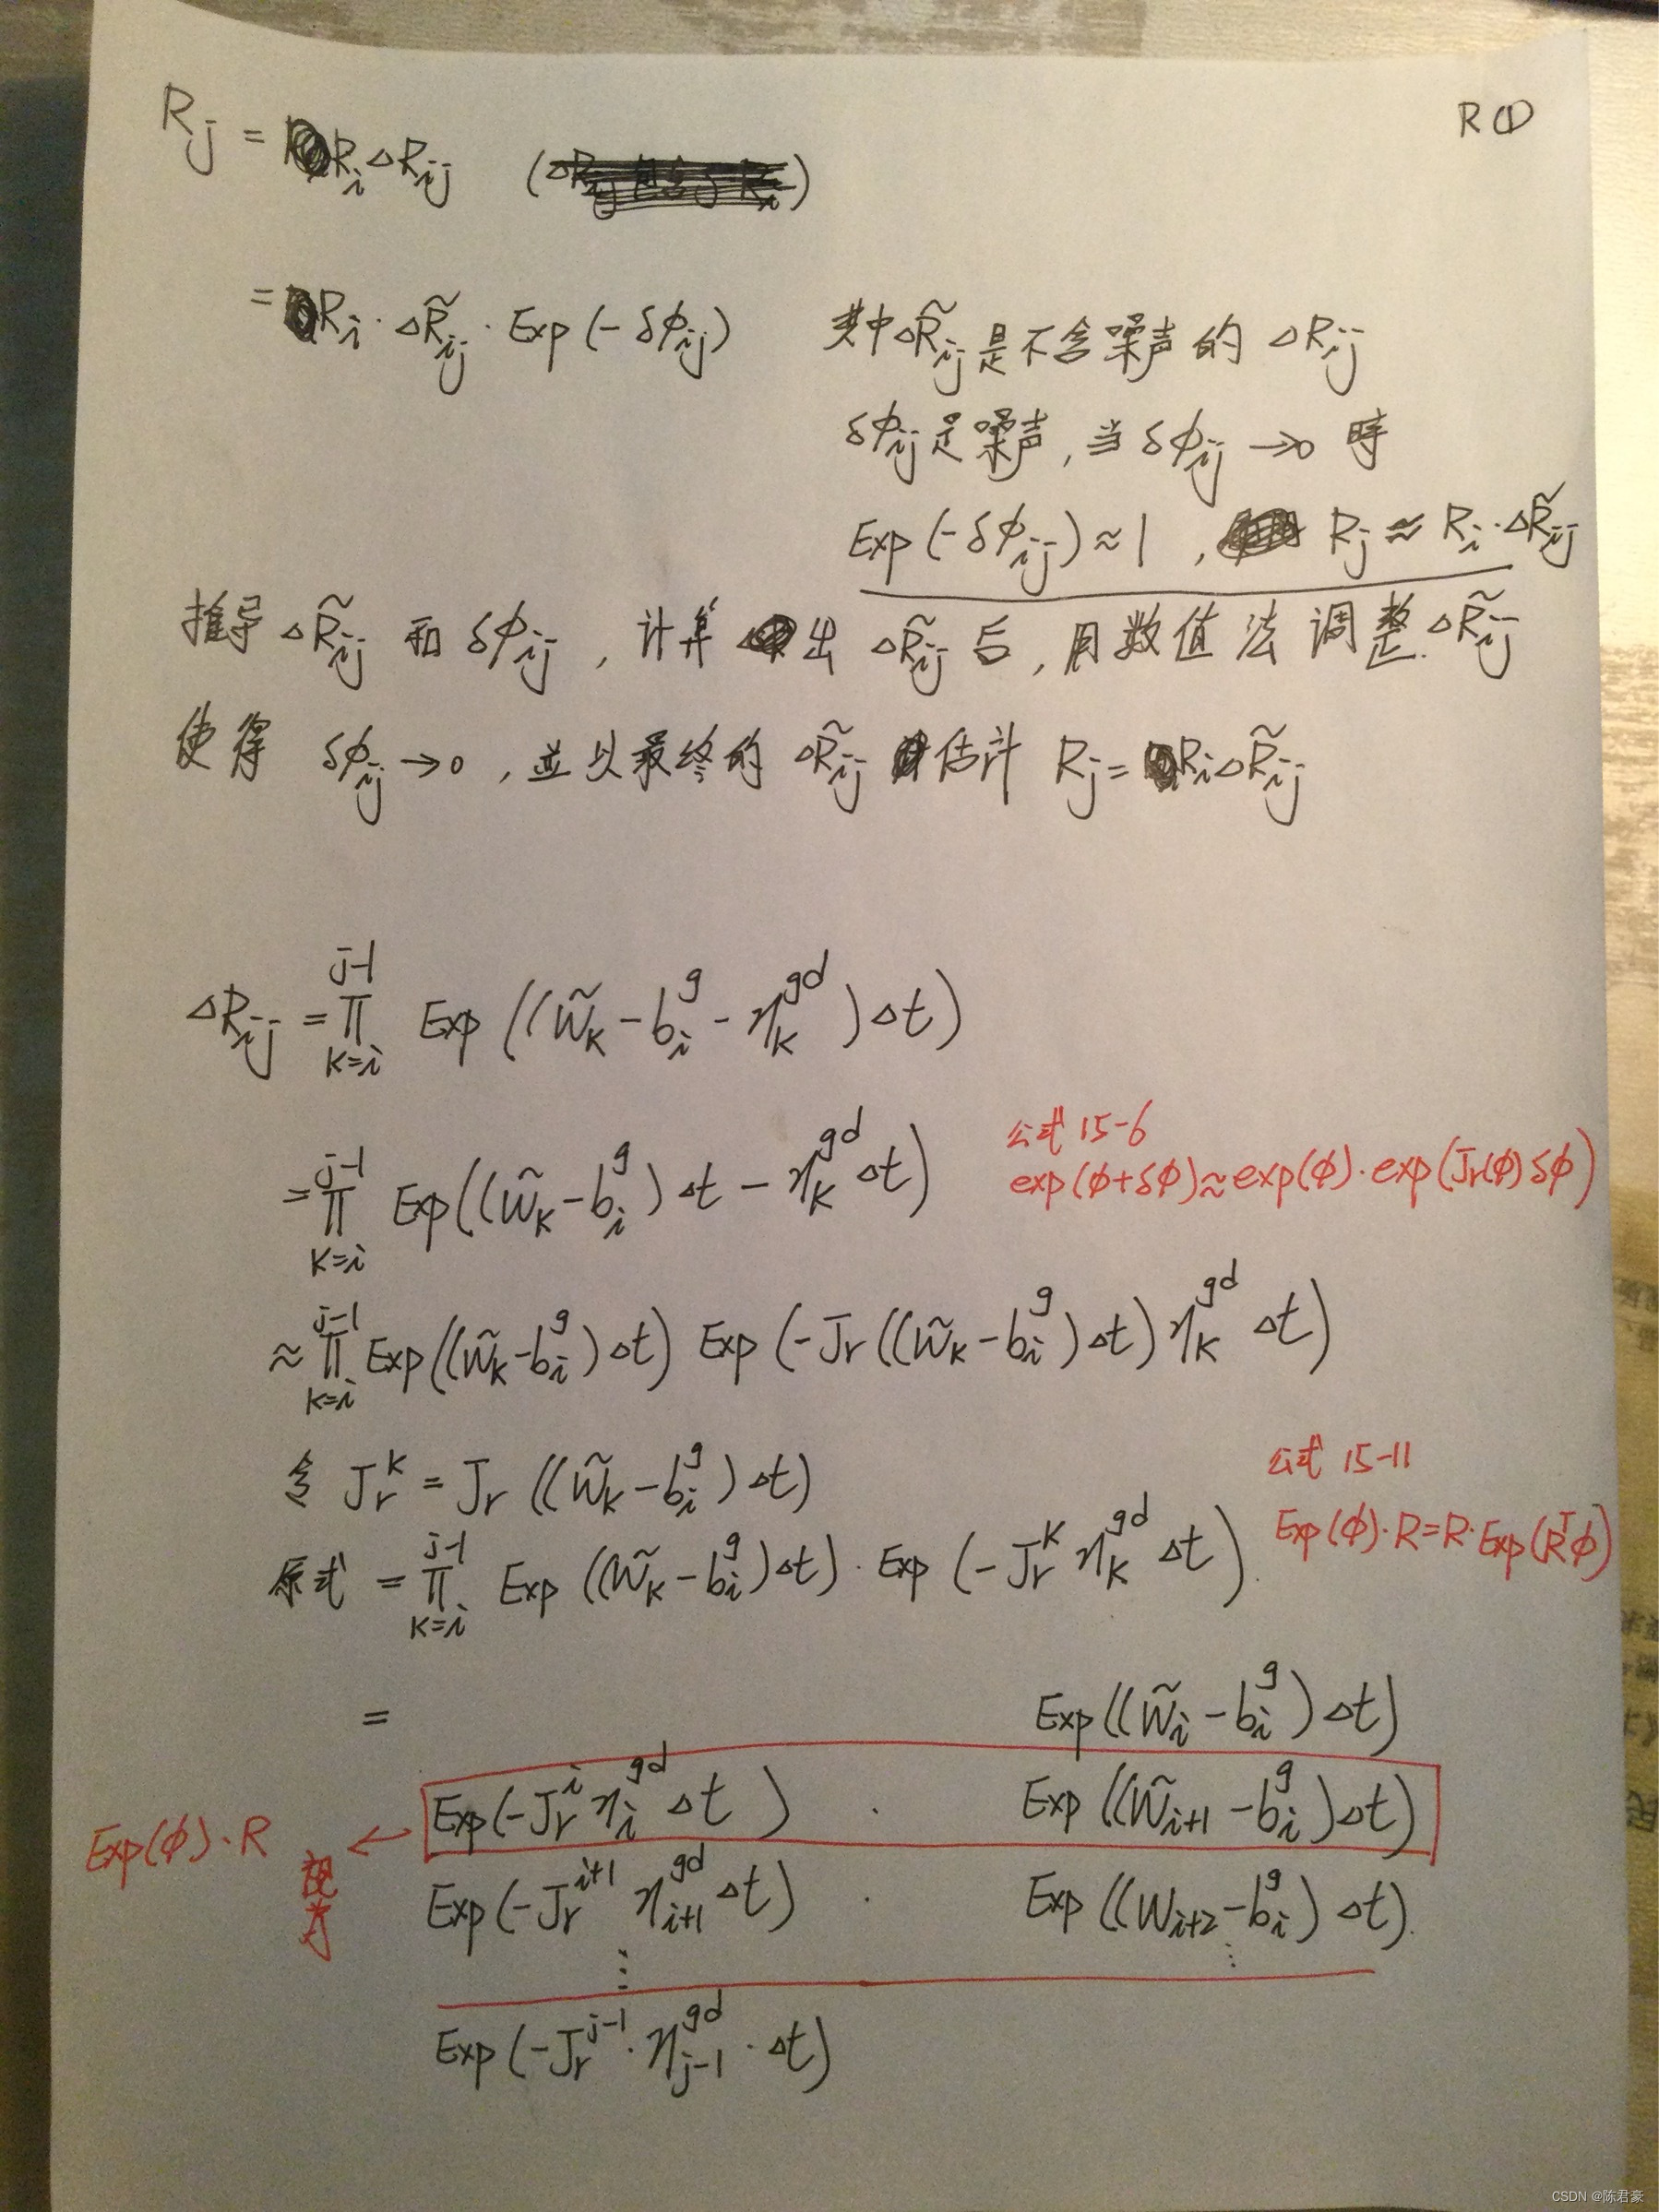 R①
R_j = R_i ΔR_ij
= R_i · ΔR̃_ij · Exp(-δφ_ij) 其中ΔR̃_ij是不含噪声的 ΔR_ij
δφ_ij是噪声, 当δφ_ij →0 时
Exp(-δφ_ij)≈1 , R_j ≈ R_i·ΔR̃_ij
推导 ΔR̃_ij 和 δφ_ij , 计算出 ΔR̃_ij 后, 用数值法调整 ΔR̃_ij
使得 δφ_ij →0 , 並以最终的 ΔR̃_ij 估计 R_j = R_iΔR̃_ij
ΔR_ij = ∏_{k=i}^{j-1} Exp((w̃_k - b_i^g - η_k^{gd})Δt)
= ∏_{k=i}^{j-1} Exp((w̃_k - b_i^g)Δt - η_k^{gd}Δt)
公式 15-6
exp(φ+δφ)≈exp(φ)·exp(Jr(φ)δφ)
≈ ∏_{k=i}^{j-1} Exp((w̃_k - b_i^g)Δt) Exp(-Jr((w̃_k - b_i^g)Δt)η_k^{gd} Δt)
令 J_r^k = J_r((w̃_k - b_i^g)Δt)
公式 15-11
Exp(φ)·R=R·Exp(R^Tφ)
原式 = ∏_{k=i}^{j-1} Exp((w̃_k - b_i^g)Δt)·Exp(-J_r^k η_k^{gd} Δt)
= Exp((w̃_i - b_i^g)Δt)
Exp(-J_r^i η_i^{gd} Δt) · Exp((w̃_{i+1} - b_i^g)Δt)
Exp(φ)·R ←
视为
Exp(-J_r^{i+1} η_{i+1}^{gd} Δt) · Exp((w_{i+2} - b_i^g)Δt).
⋮ ⋮
Exp(-J_r^{j-1}·η_{j-1}^{gd}·Δt)
CSDN @陈君豪